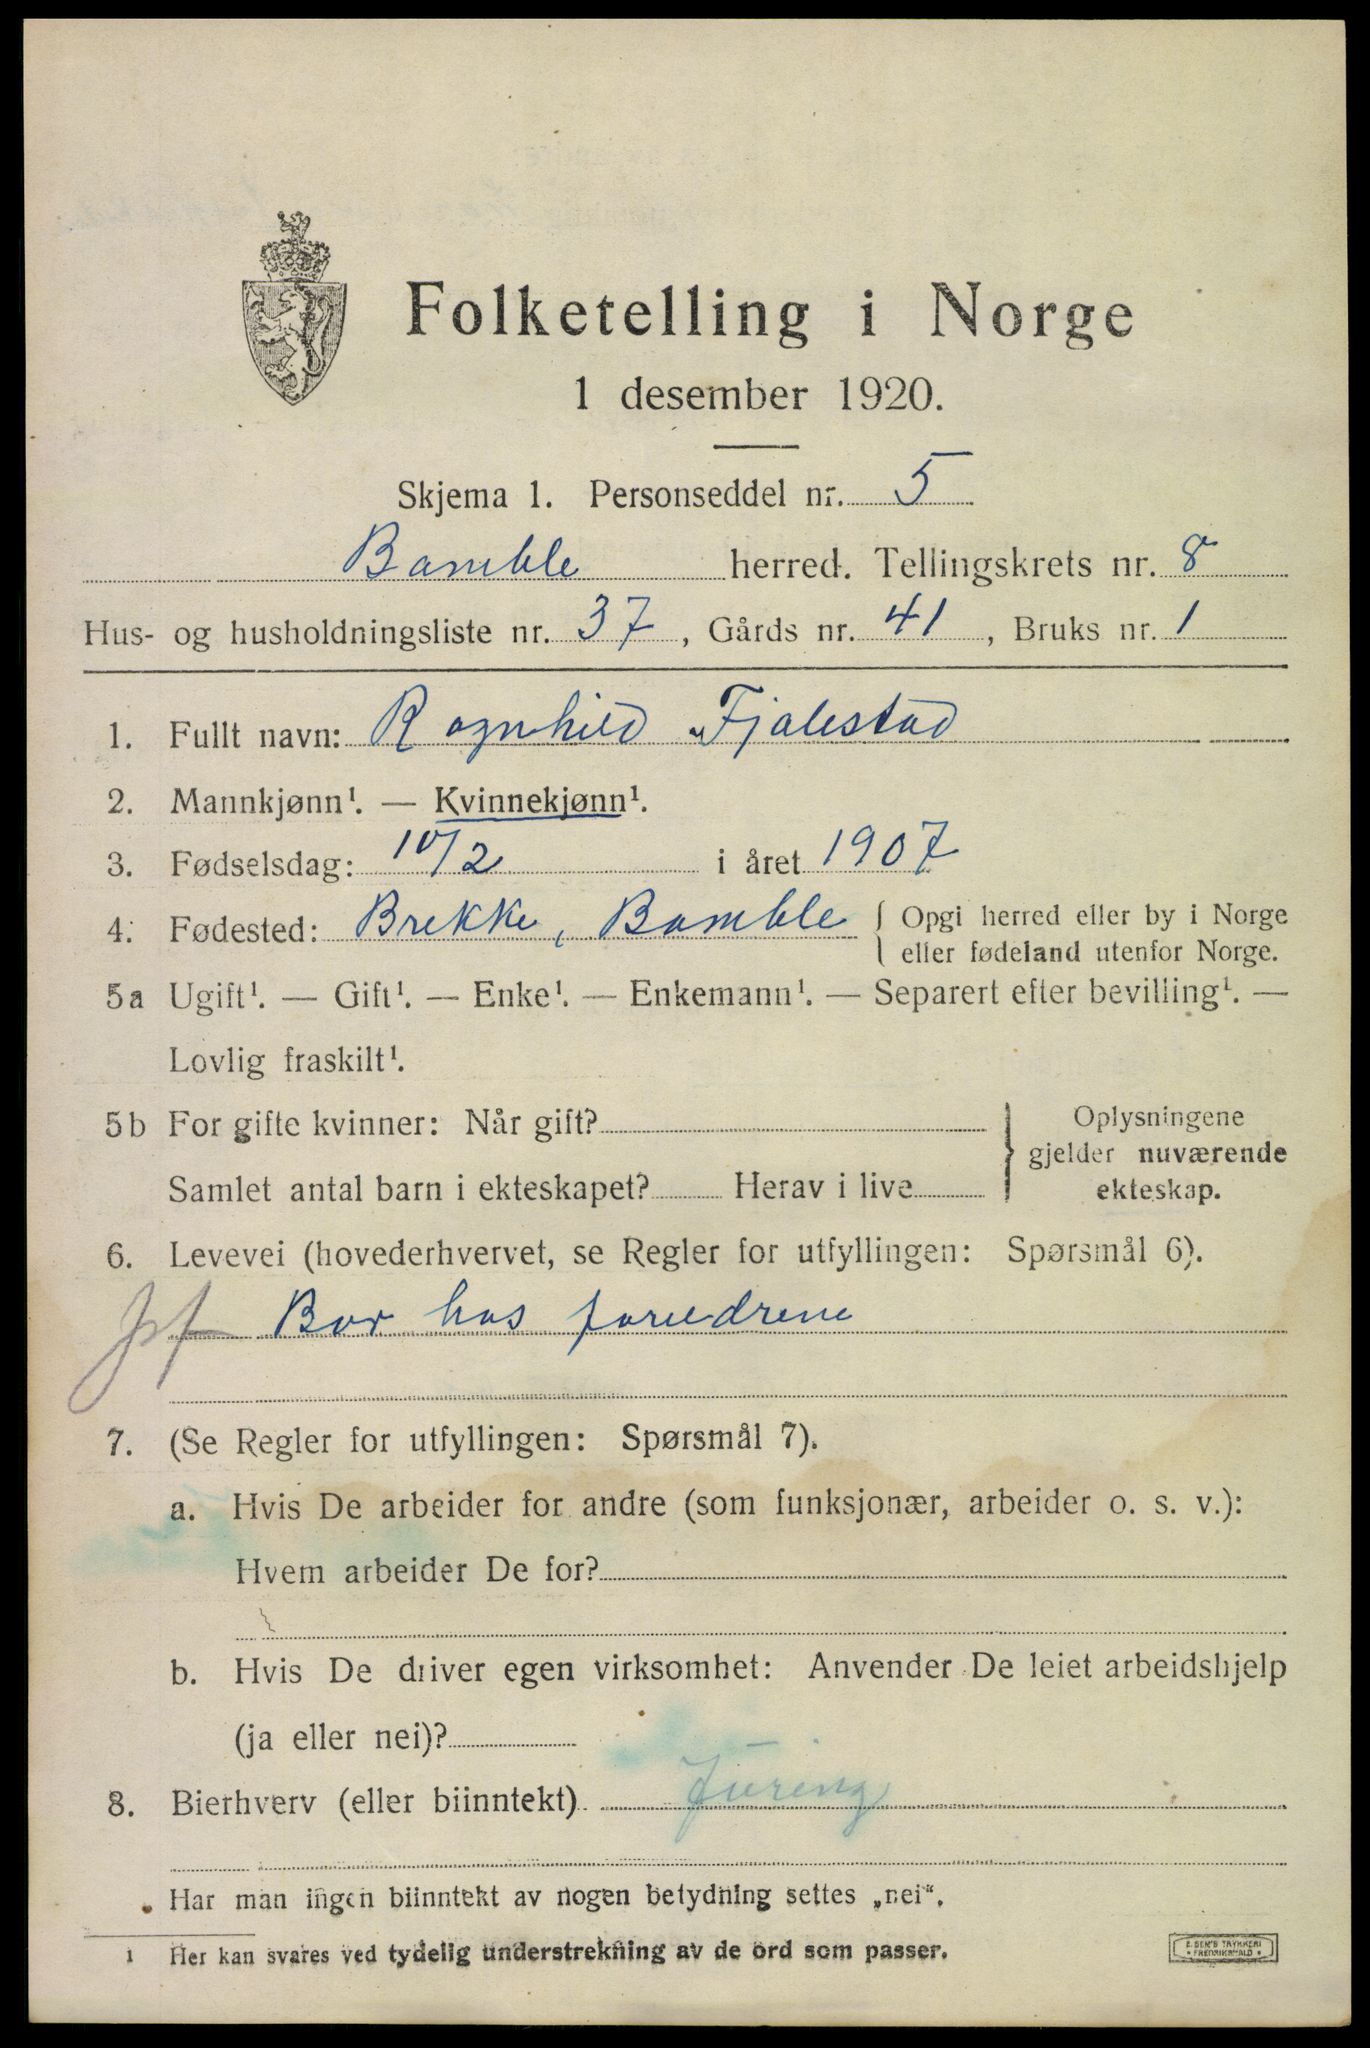 Folketelling i Norge
1 desember 1920.
Skjema 1. Personseddel nr. 5
Bamble herred. Tellingskrets nr. 8
Hus- og husholdningsliste nr. 37, Gårds nr. 41, Bruks nr. 1
1. Fullt navn: Ragnhild Fjalestad
2. Mannkjønn¹. — Kvinnekjønn¹.
3. Fødselsdag: 10/2 i året 1907
4. Fødested: Brekke, Bamble { Opgi herred eller by i Norge
eller fødeland utenfor Norge.
5a Ugift¹. — Gift¹. — Enke¹. — Enkemann¹. — Separert efter bevilling¹. —
Lovlig fraskilt¹.
5b For gifte kvinner: Når gift? } Oplysningene
gjelder nuværende
Samlet antal barn i ekteskapet? Herav i live ekteskap.
6. Levevei (hovederhvervet, se Regler for utfyllingen: Spørsmål 6).
Bor hos foreldrene
7. (Se Regler for utfyllingen: Spørsmål 7).
a. Hvis De arbeider for andre (som funksjonær, arbeider o. s. v.):
Hvem arbeider De for?
b. Hvis De driver egen virksomhet: Anvender De leiet arbeidshjelp
(ja eller nei)?
8. Bierhverv (eller biinntekt)
Har man ingen biinntekt av nogen betydning settes „nei“.
1 Her kan svares ved tydelig understrekning av de ord som passer.
E. SEM'S TRYKKERI
FREDRIKSHALD